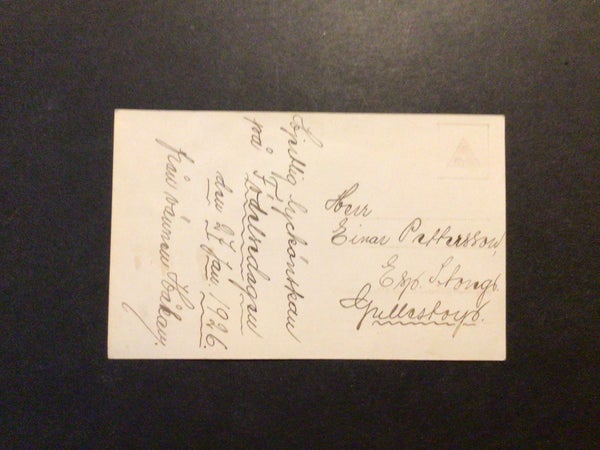 Hjertlig lyckönskan
på Födelsedagen
den 27 Jan. 1926.
från vännen Håkan.
Herr
Einar Pettersson,
Exp.
Gullaskojs.